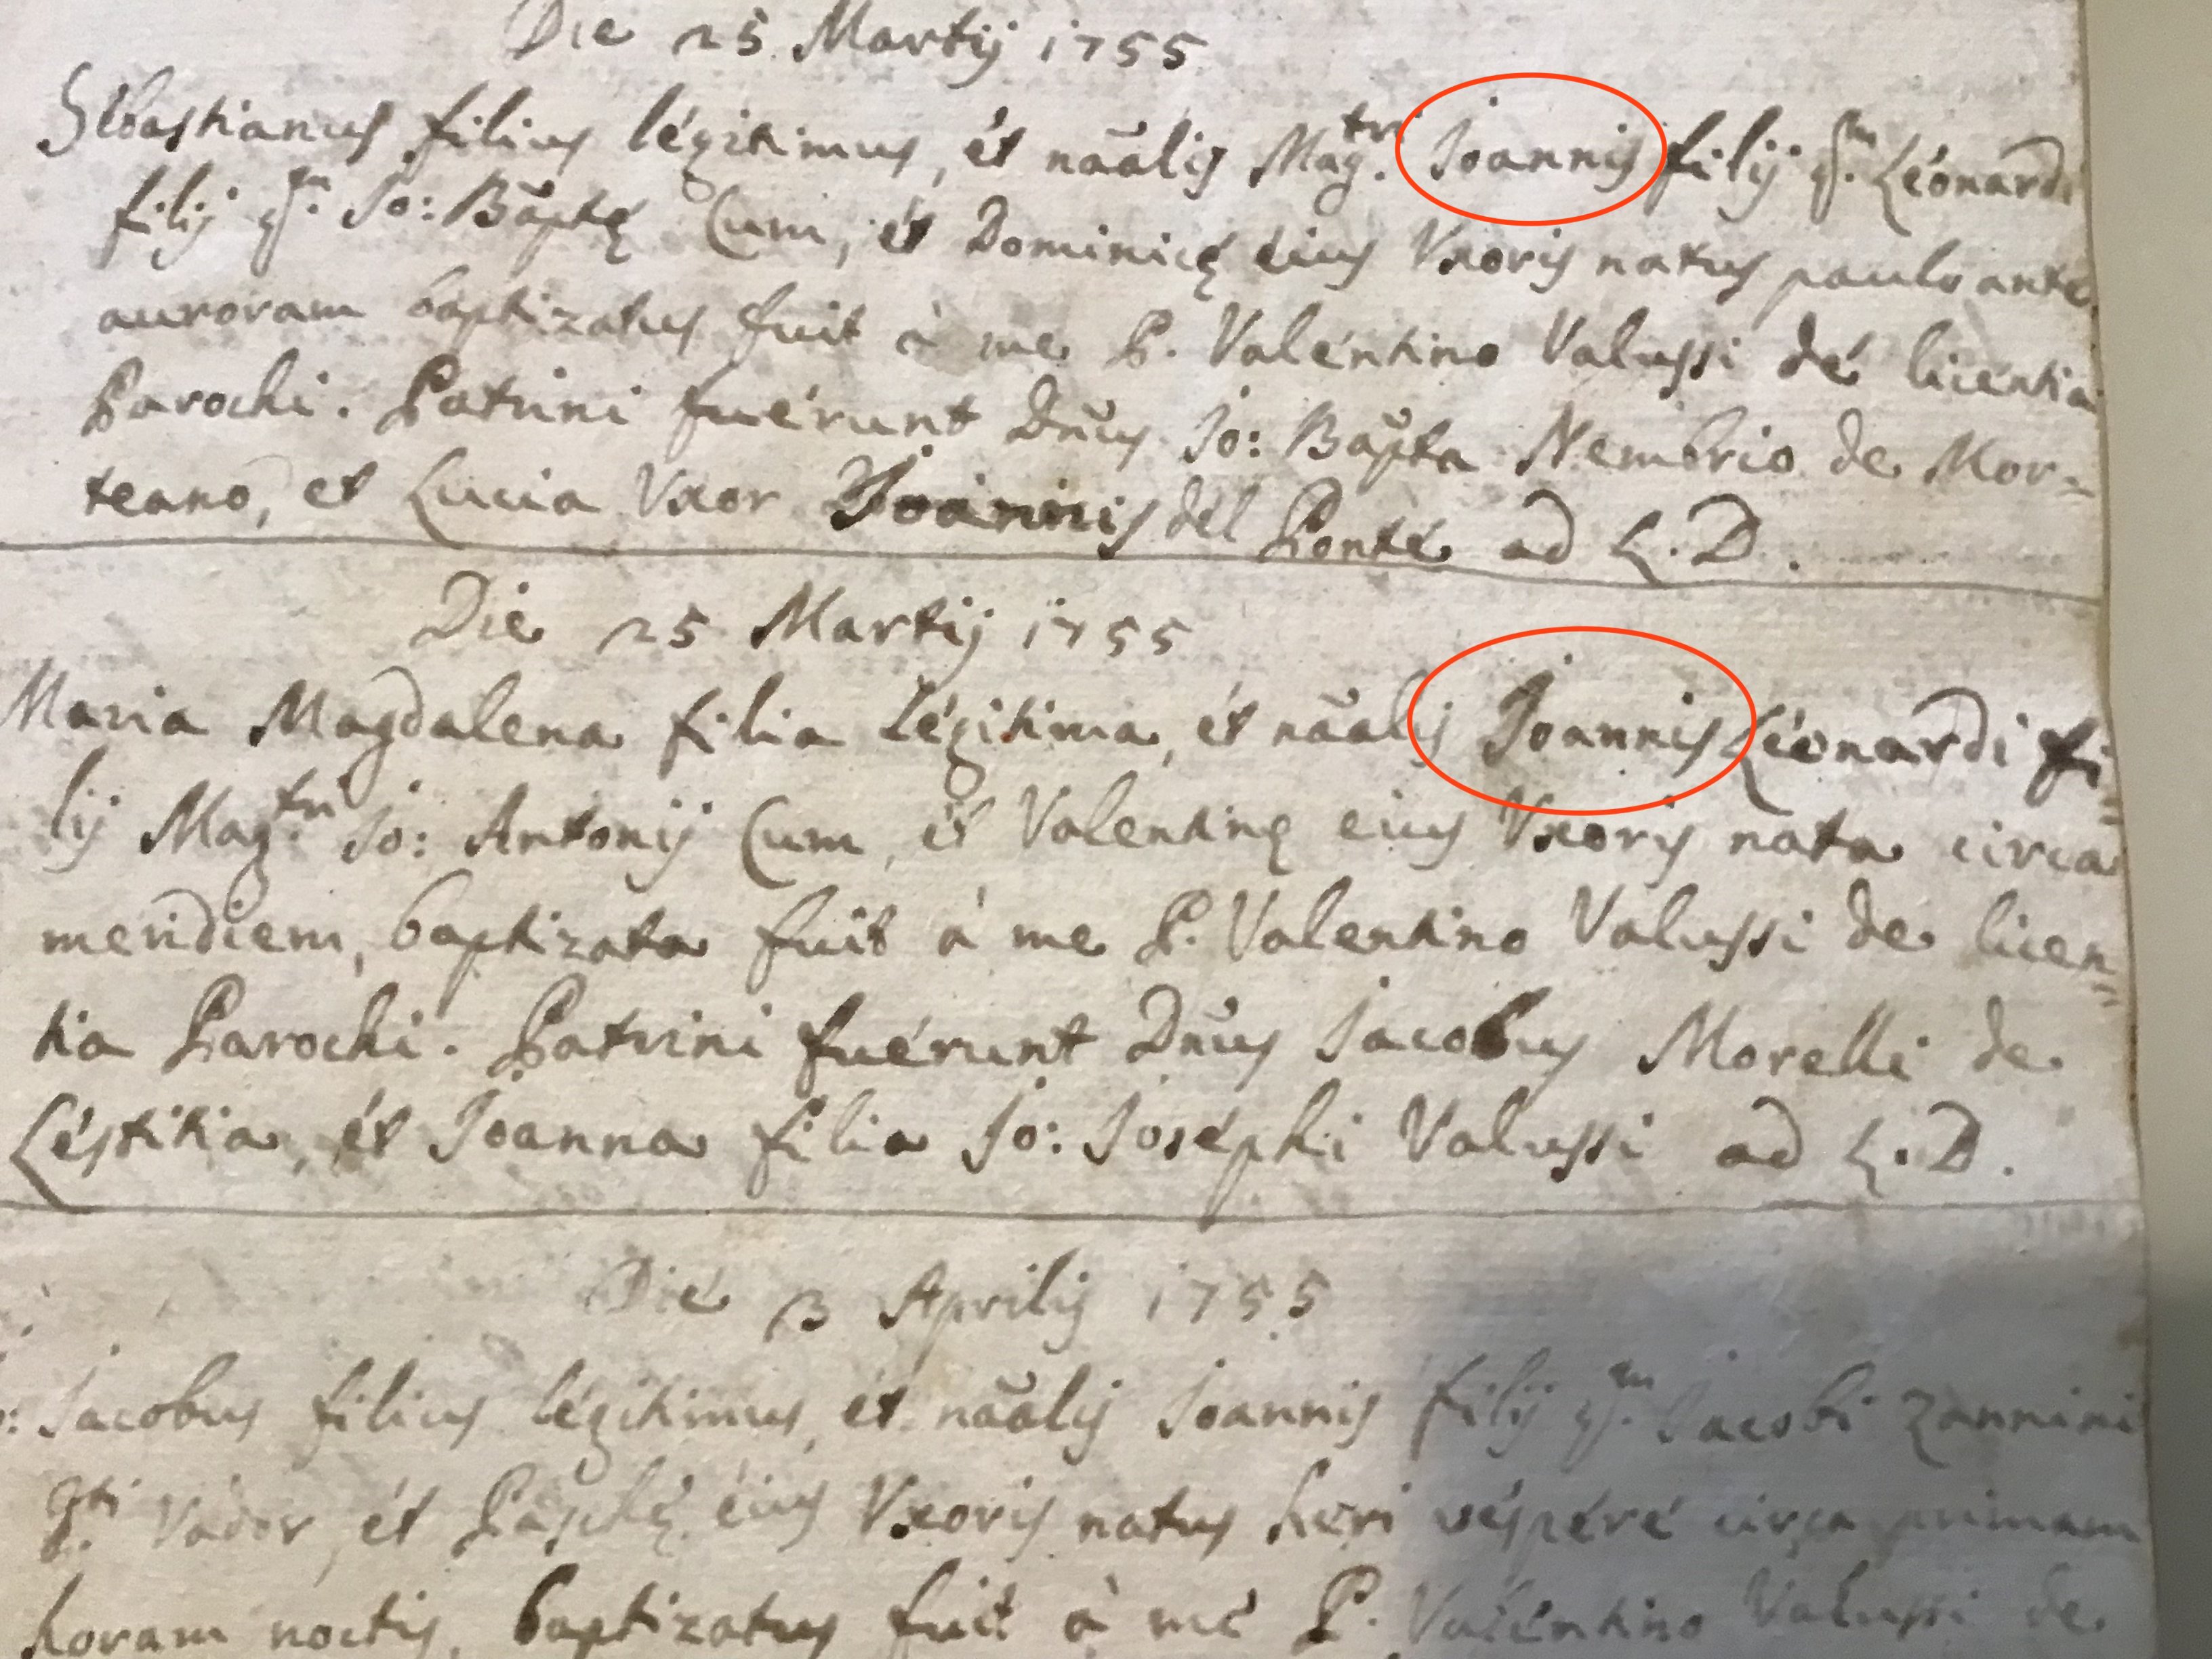 Die 25 Martij 1755
Sebastianus filius légitimus, ét nãalis Mag.tri Joannis filij q.m Léonardi
filij q.m Jo: Bãptę Cum, ét Dominicę éius Vxoris natus paulo anté
auroram baptizatus fuit à me P. Valéntino Valussi dé licéntia
Parochi. Patrini fuérunt Dñus Jo: Bãpta Nembrio de Mor=
teano, et Lucia Vxor Joannis dél Ponté ad L.D.
Die 25 Martij 1755
Maria Magdalena filia légitima, ét nãalis Joannis Léonardi fi=
lij Mag.tri Jo: Antonij Cum, ét Valentinę eius Vxoris nata circa
meridiem, baptizata fuit à me P. Valentino Valussi de licen=
tia Parochi. Patrini fuérunt Dñus Jacobus Morelli de
Léstitia, ét Joanna filia Jo: Joséphi Valussi ad L.D.
Dié 3 Aprilis 1755
Jacobus filius légitimus, ét nãalis Joannis filij q.m Jacobi Zannini
Vador, ét Paschę éius Vxoris natus heri véspéré circa primam
horam noctis, baptizatus fuit à mé P. Valéntino Valussi de